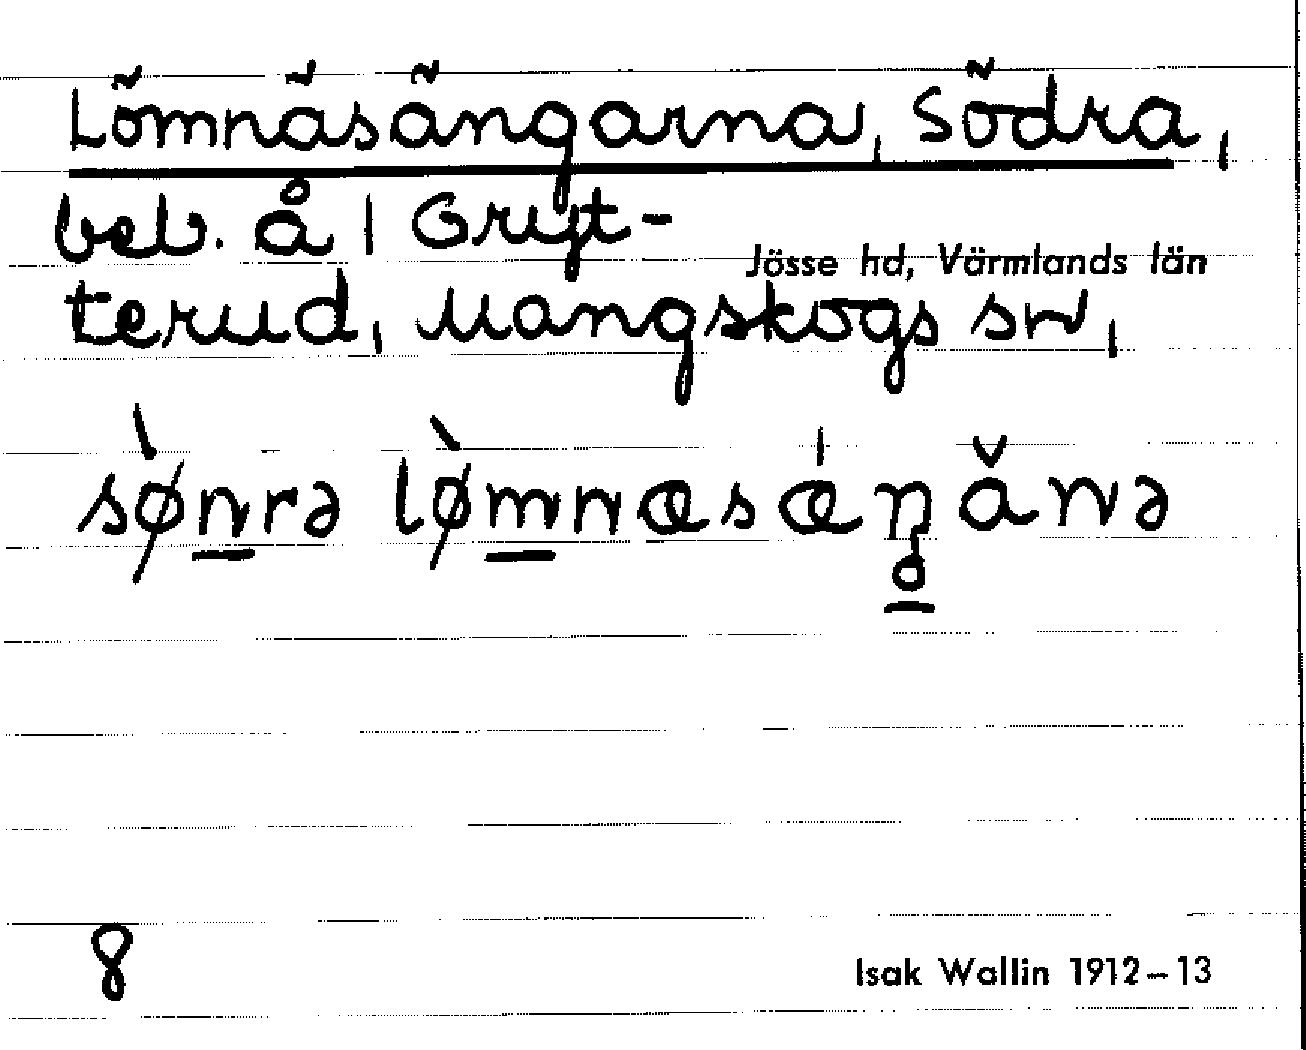 Lömnäsängarna, Södra,
beb. å 1 Gryt-
Jösse hd, Värmlands län
terud, Mangskogs sn,
sø̀nrə lø̀mnæsǽŋăɴə
8
Isak Wallin 1912–13